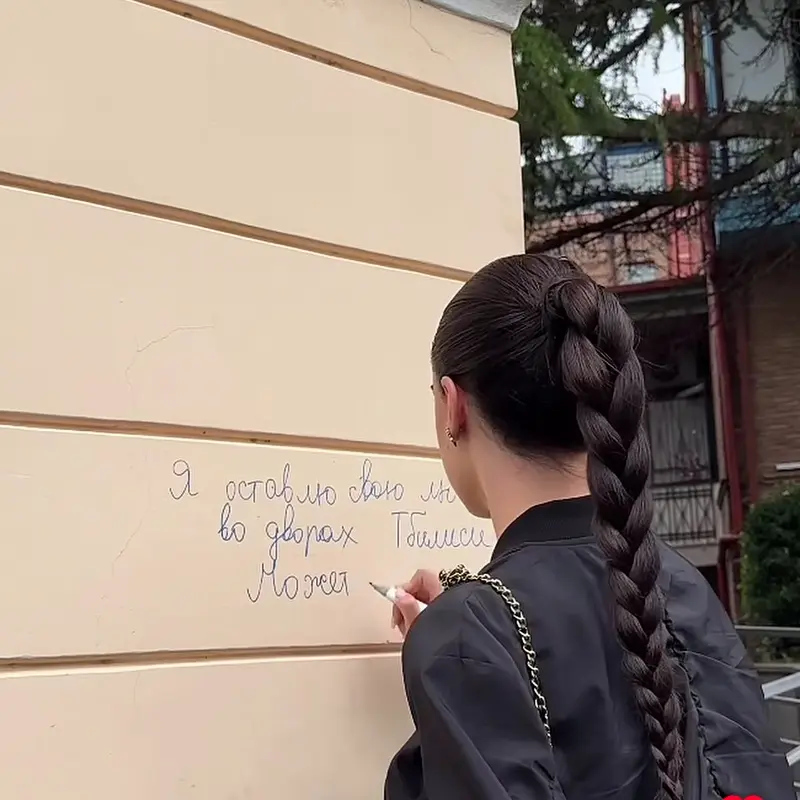 Я оставлю свою
во дворах Тбилиси
Может